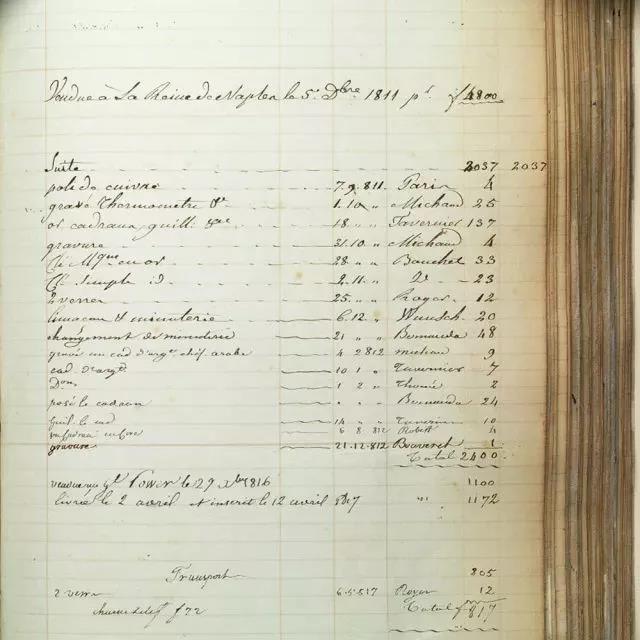 Vendue à La Reine de Naples le 5 Dbre 1811 pr f 4800
Suite 2037 2037
poli de cuivre 7.9.811. Paris 4
gravé thermomètre &c 1.10 " Michaud 25
or cadraux, guill. &ce 18. " " Tavernier 137
gravure 31.10 " Michaud 4
Clé Mque en or 28. " " Bouchet 33
Cl. simple id. 2.11. " Do 23
2 verres 25. " " Roger 12
limaçon & minuterie 6.12. " Wunsch 20
changement de minuterie 21 " Bernauda 48
gravé un cad d'argt chif. arabe 4 2 812 michau 9
cad. d'argt 10 1 " Tavernier 7
Dom 1 2 " Thomé 2
posé le cadran " " Bernauda 24
Guil. le cad 14 " " Tavernier 10
6 8 812 Robert 4
gravure 21.12.812 Bouveret 1
Total 2400
Power le 29 Xbre 1816 1100
livrée le 2 avril et inscrit le 12 avril 1817 " 1172
Transport 805
2 verre 6.5.817 Royer 12
f 22 Total f 817